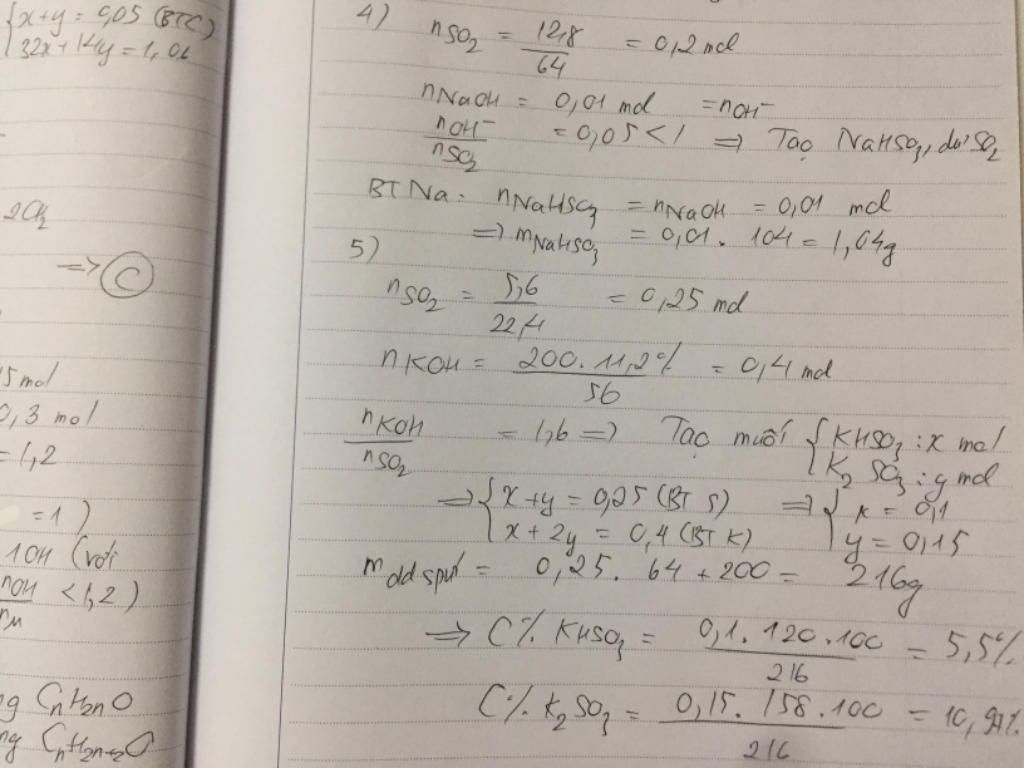 {x+y = 0,05 (BTC)
32x+14y = 1,01
2O2
=> C
5 mol
0,3 mol
= 1,2
= 1)
1OH (với
nOH < 1,2)
ng CnH2nO
ng CnH2n+2O
4)
nSO2 = 12,8/64 = 0,2 mol
nNaOH = 0,01 mol = nOH-
nOH-/nSO2 = 0,05 < 1 => Tạo NaHSO3, dư SO2
BTNa: nNaHSO3 = nNaOH = 0,01 mol
=> mNaHSO3 = 0,01. 104 = 1,04g
5)
nSO2 = 5,6/22,4 = 0,25 mol
nKOH = 200. 11,2%/56 = 0,4 mol
nKOH/nSO2 = 1,6 => Tạo muối {KHSO3 : x mol
K2SO3 : y mol
=> {x+y = 0,25 (BT S) => {x = 0,1
x + 2y = 0,4 (BT K) y = 0,15
mdd spứ = 0,25. 64 + 200 = 216g
=> C% KHSO3 = 0,1. 120. 100/216 = 5,5%
C% K2SO3 = 0,15. 158. 100/216 = 10,97%